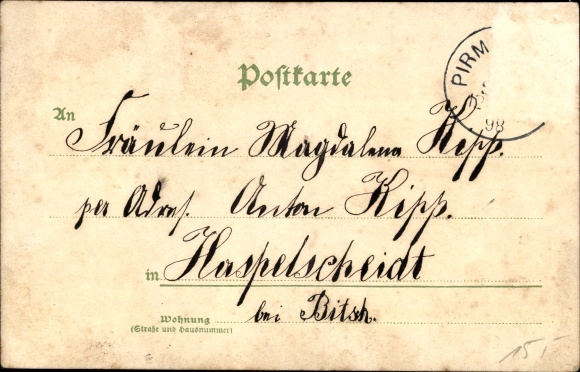 Postkarte
PIRM
98
An Fräulein Magdalena Kipp.
per Adres. Anton Kipp.
in Haspelscheidt
Wohnung bei Bitsch.
(Straße und Hausnummer)
15,-